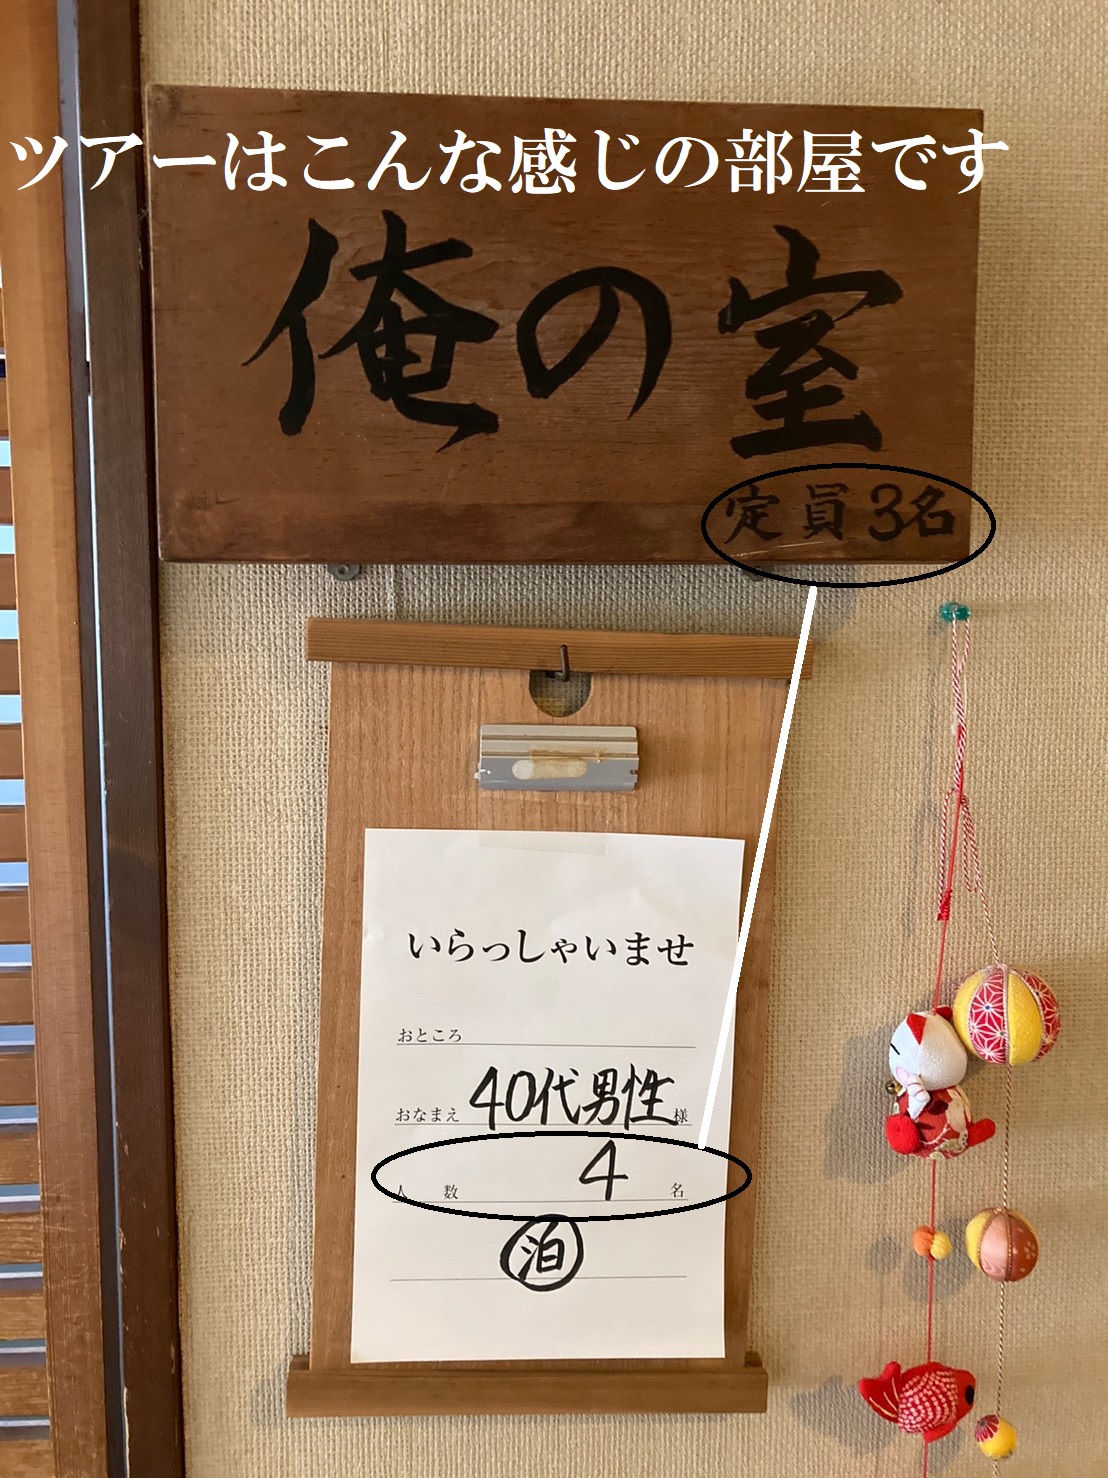 ツアーはこんな感じの部屋です
俺の室
定員3名
いらっしゃいませ
おところ
おなまえ 40代男性 様
人 数 4 名
泊